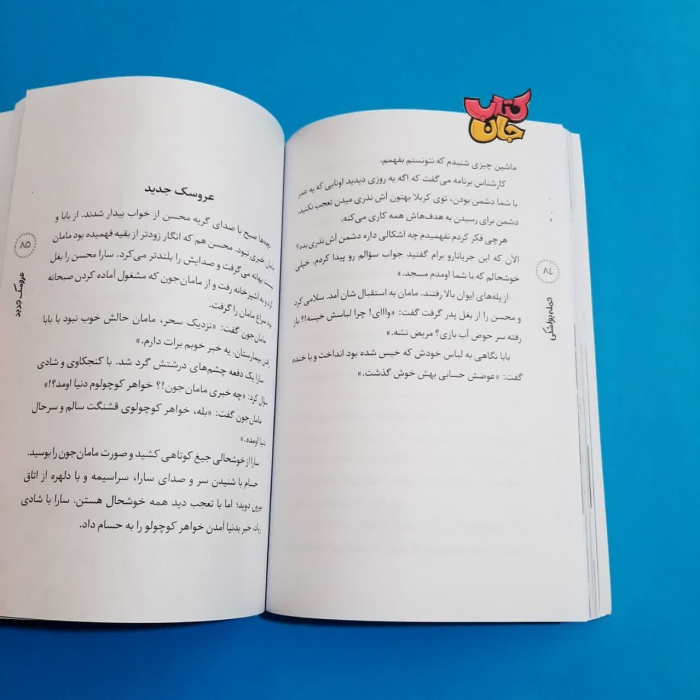 کتاب
جان
ماشین چیزی شنیدم که نتونستم بفهمم.
کارشناس برنامه می‌گفت که اگه یه روزی دیدید اونایی که یه عمر
با شما دشمن بودن، توی کربلا بهتون آش نذری میدن تعجب نکنید.
دشمن برای رسیدن به هدف‌هاش همه کاری می‌کنه.
هر چی فکر کردم نفهمیدم چه اشکالی داره دشمن آش نذری بده؟
الآن که این جریانارو برام گفتید جواب سؤالم رو پیدا کردم. خیلی
خوشحالم که با شما اومدم مسجد.»
از پله‌های ایوان بالا رفتند. مامان به استقبال شان آمد. سلامی کرد
و محسن را از بغل پدر گرفت گفت: «وااای! چرا لباسش خیسه؟! باز
رفته سر حوض آب بازی؟ مریض نشه.»
بابا نگاهی به لباس خودش که خیس شده بود انداخت و با خنده
گفت: «عوضش حسابی بهش خوش گذشت.»
۸۴
حمله یواشکی
عروسک جدید
بچه‌ها صبح با صدای گریه محسن از خواب بیدار شدند. از بابا و
مامان خبری نبود. محسن هم که انگار زودتر از بقیه فهمیده بود مامان
نیست بهانه می‌گرفت و صدایش را بلندتر می‌کرد. سارا محسن را بغل
کرد و به آشپزخانه رفت و از مامان‌جون که مشغول آماده کردن صبحانه
بود سراغ مامان را گرفت.
مامان‌جون گفت: «نزدیک سحر، مامان حالش خوب نبود با بابا
رفتن بیمارستان. یه خبر خوبم برات دارم.»
سارا یک دفعه چشم‌های درشتش گرد شد. با کنجکاوی و شادی
سؤال کرد: «چه خبری مامان‌جون!؟ خواهر کوچولوم دنیا اومد؟!»
مامان‌جون گفت: «بله، خواهر کوچولوی قشنگت سالم و سرحال
دنیا اومده.»
سارا از خوشحالی جیغ کوتاهی کشید و صورت مامان‌جون را بوسید.
حسام با شنیدن سر و صدای سارا، سراسیمه و با دلهره از اتاق
بیرون دوید؛ اما با تعجب دید همه خوشحال هستن. سارا با شادی
زیاد، خبر بدنیا آمدن خواهر کوچولو را به حسام داد.
۸۵
عروسک جدید